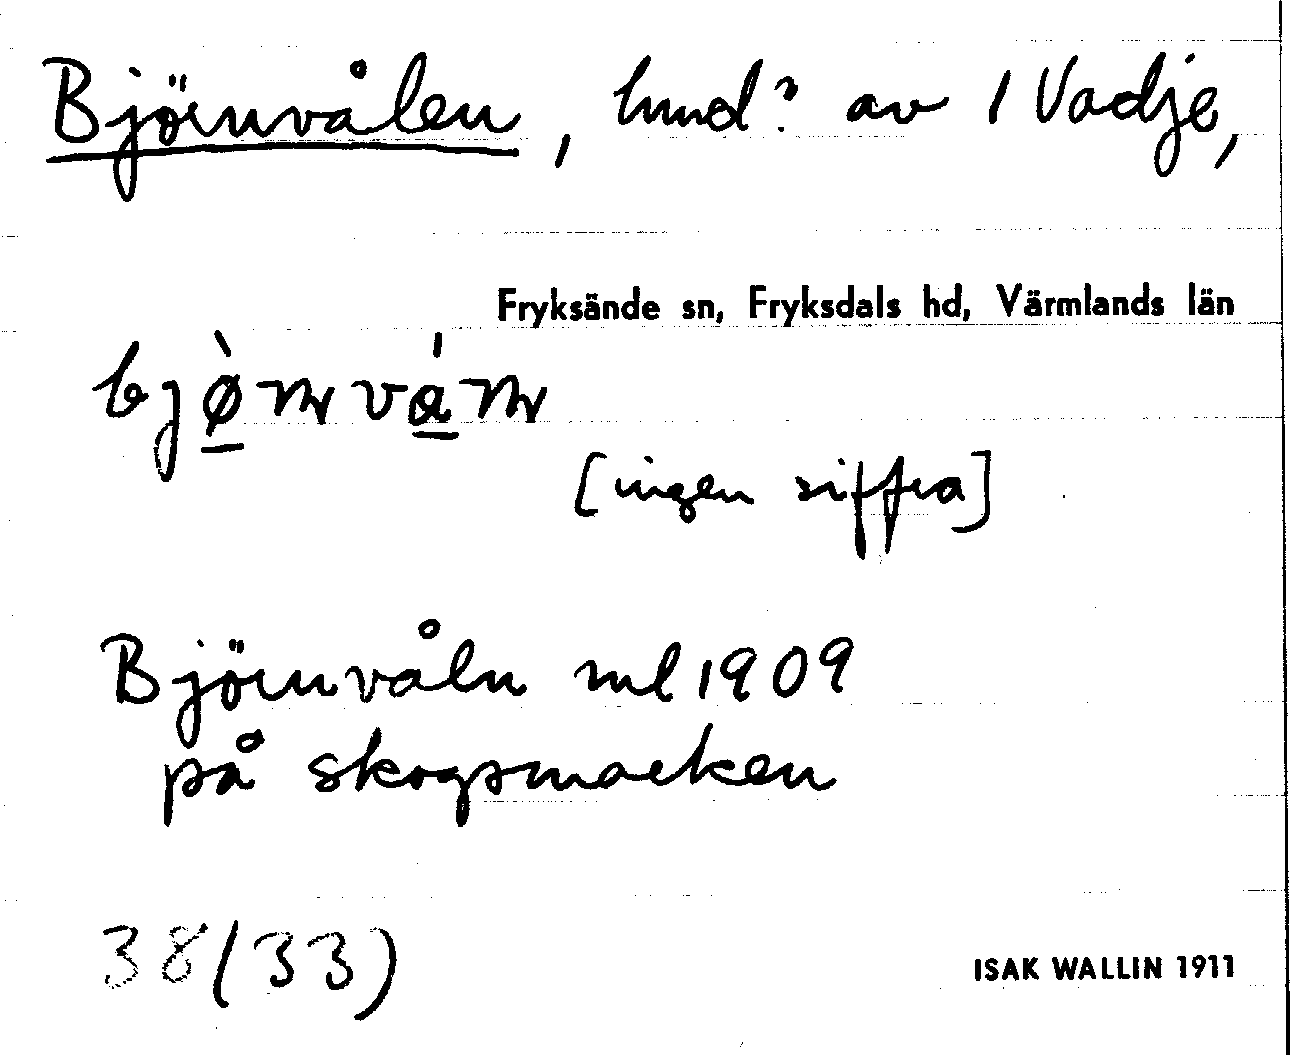 Björnvålen, hmd? av 1 Vadje,
Fryksände sn, Fryksdals hd, Värmlands län
[ingen siffra]
Björnvåln ml 1909
på skogsmarken
38 (33)
ISAK WALLIN 1911